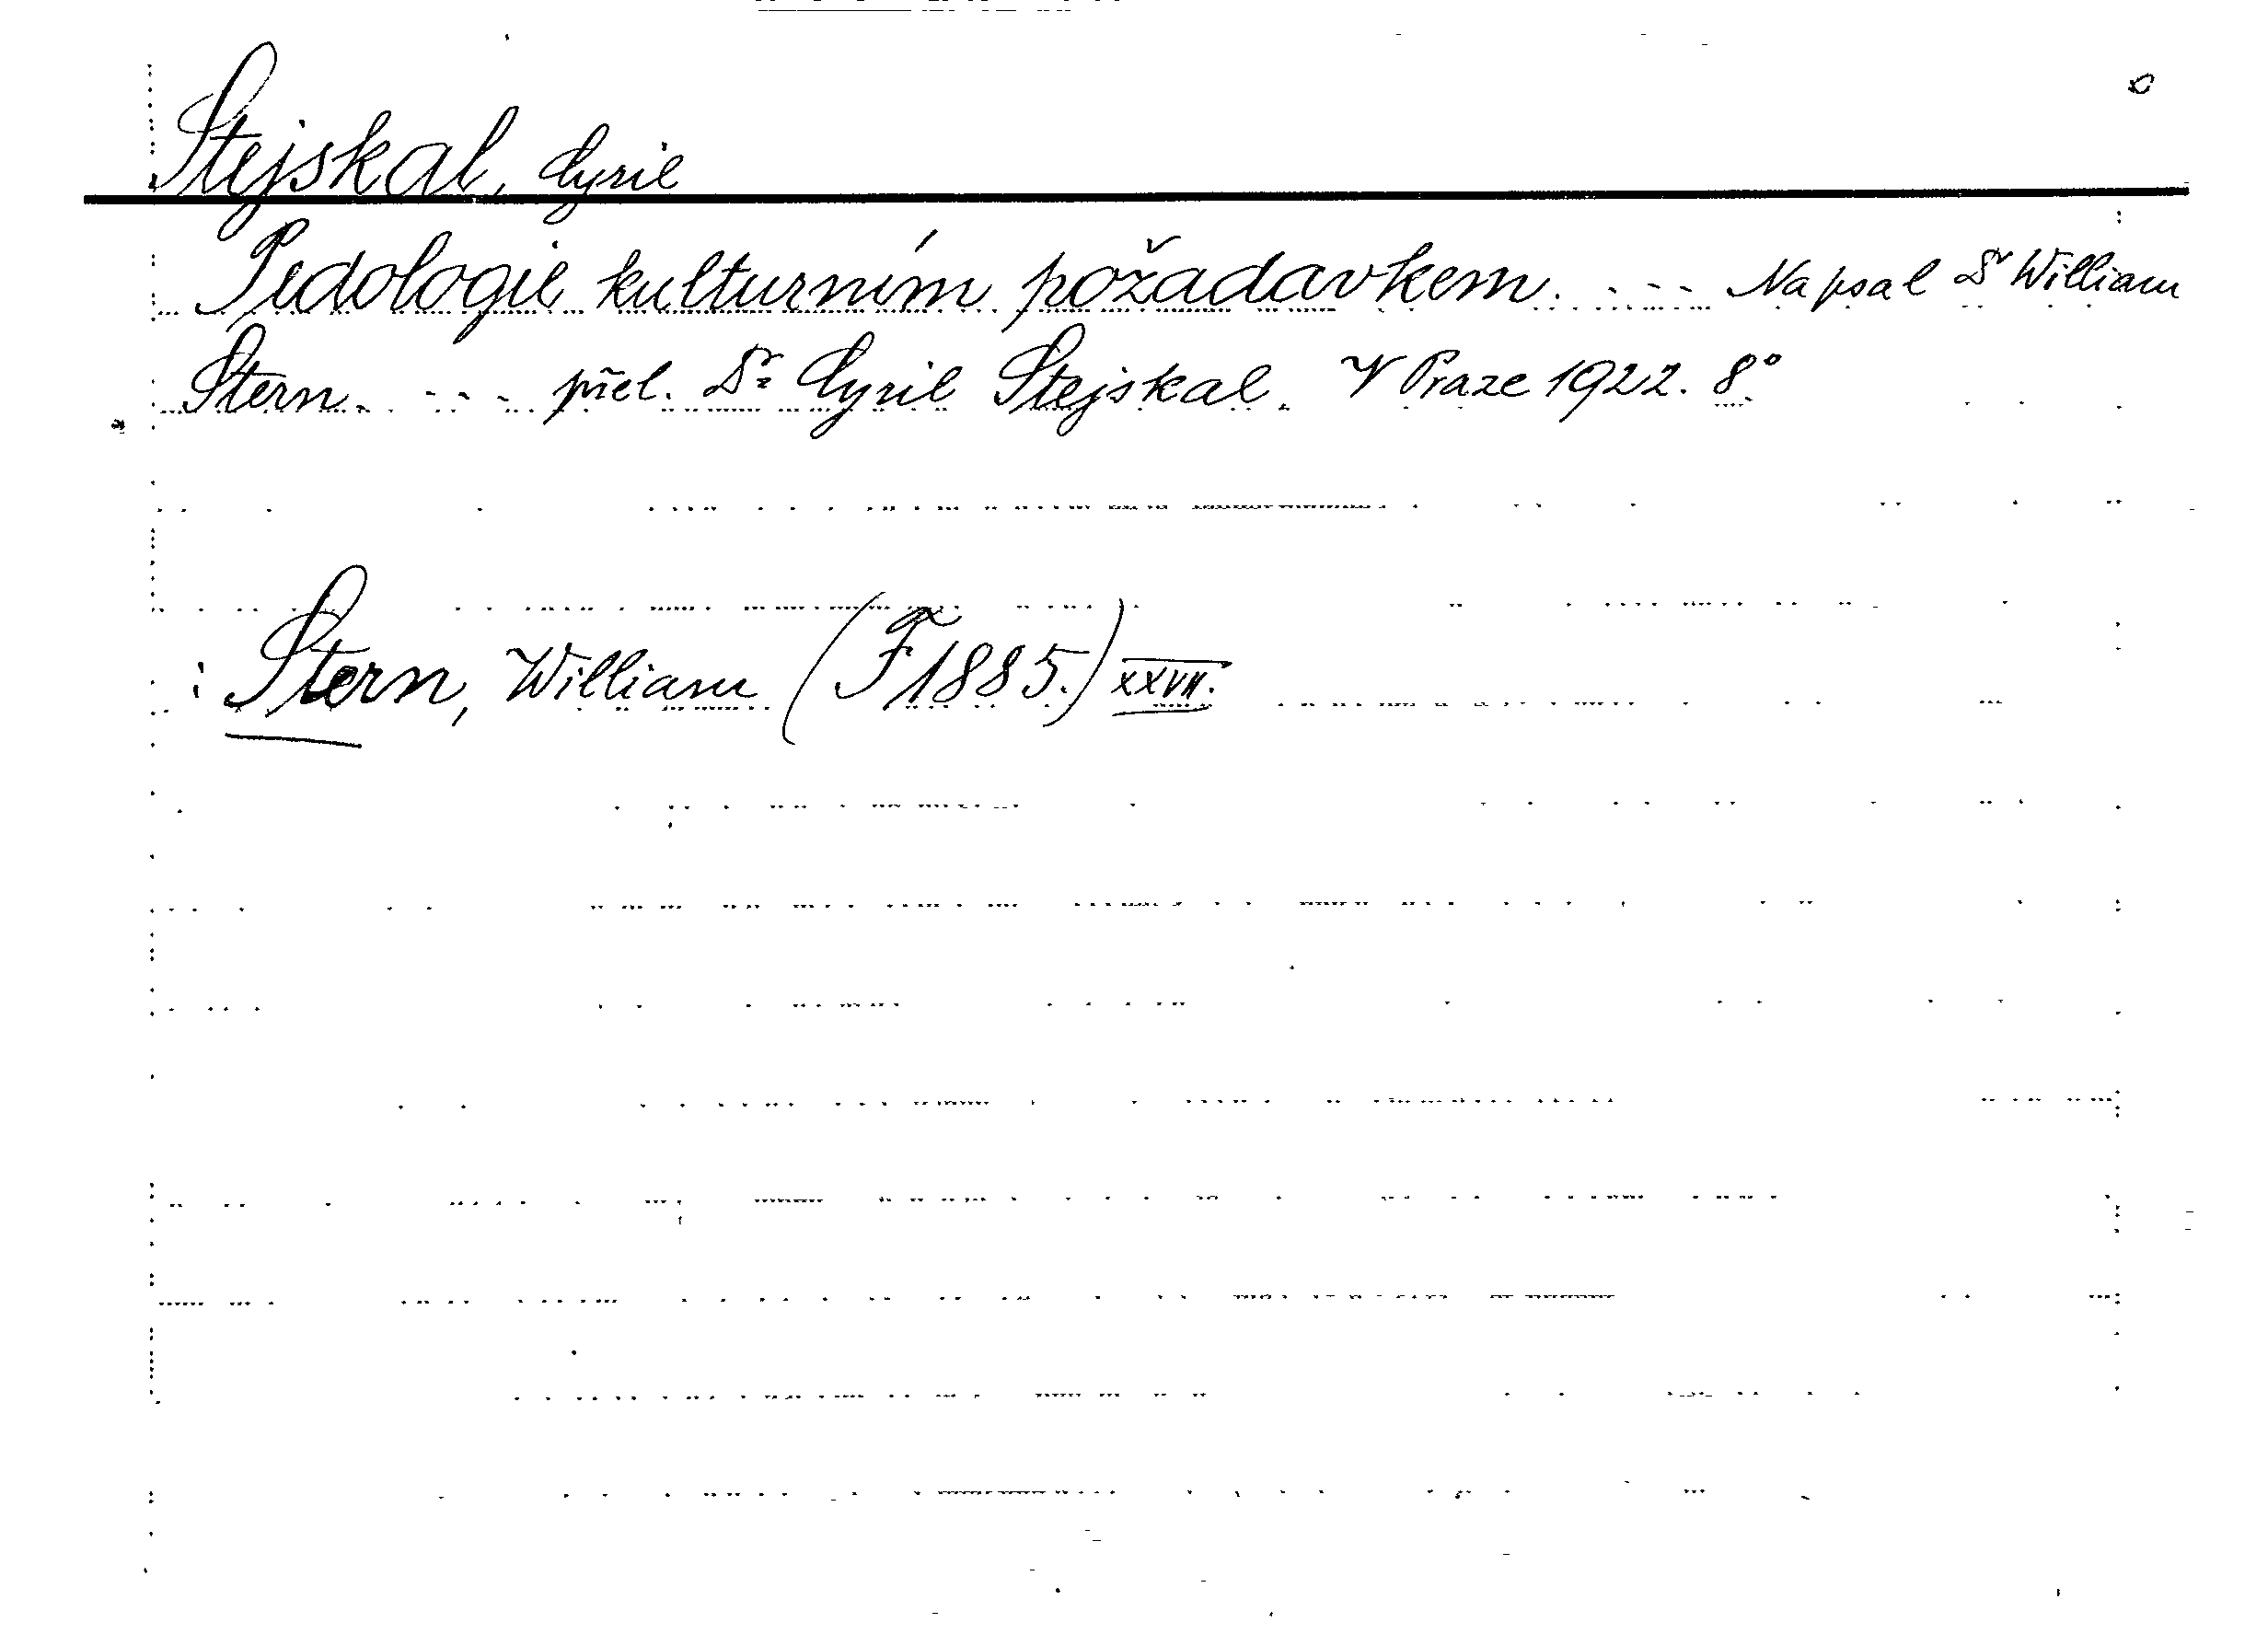 Stejskal, Cyril
Pedologie kulturním požadavkem. - - - Napsal Dr William
Stern. - - - přel. Dr. Cyril Stejskal. V Praze 1922. 8°
: Stern, William (F 1885.) XXVII.